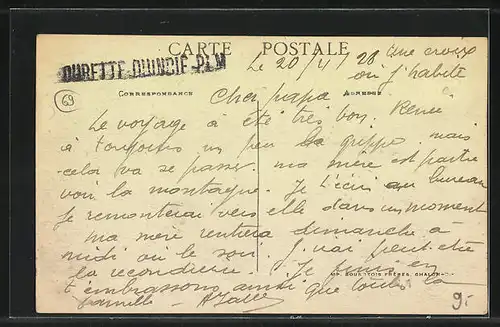 CARTE POSTALE
DURETTE-QUINCIÉ-P.L.M
Le 20/4/28
une croix
où j'habite
CORRESPONDANCE
ADRESSE
69
Cher papa
Le voyage a été très bon. Renée
a toujours un peu la grippe mais
cela va se passer. ma mère est partie
voir la montagne. Je t'écris au bureau
Je remonterai vers elle dans un moment
ma mère rentrera dimanche à
midi ou le soir. J'irai peut-être
la reconduire. Je finis en
t'embrassant ainsi que toute la
famille -
IMP. BOURGEOIS FRÈRES, CHALON
9.-